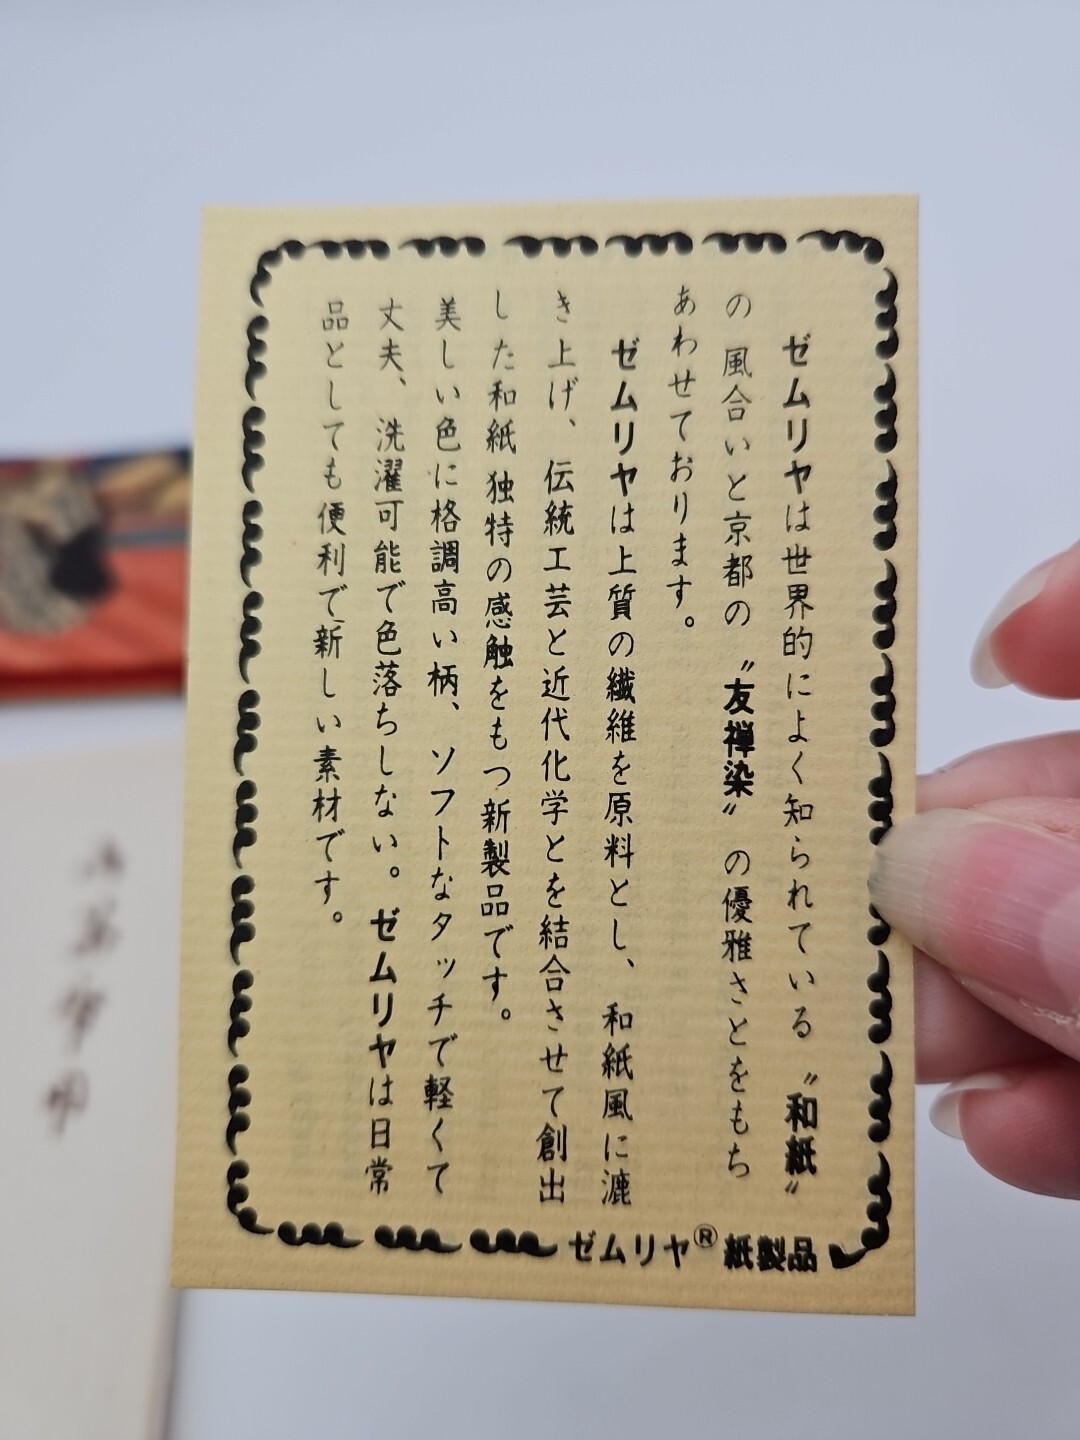 ゼムリヤは世界的によく知られている〝和紙〟
の風合いと京都の〝友禅染〟の優雅さとをもち
あわせております。
ゼムリヤは上質の繊維を原料とし、和紙風に漉
き上げ、伝統工芸と近代化学とを結合させて創出
した和紙独特の感触をもつ新製品です。
美しい色に格調高い柄、ソフトなタッチで軽くて
丈夫、洗濯可能で色落ちしない。ゼムリヤは日常
品としても便利で新しい素材です。
ゼムリヤ®紙製品